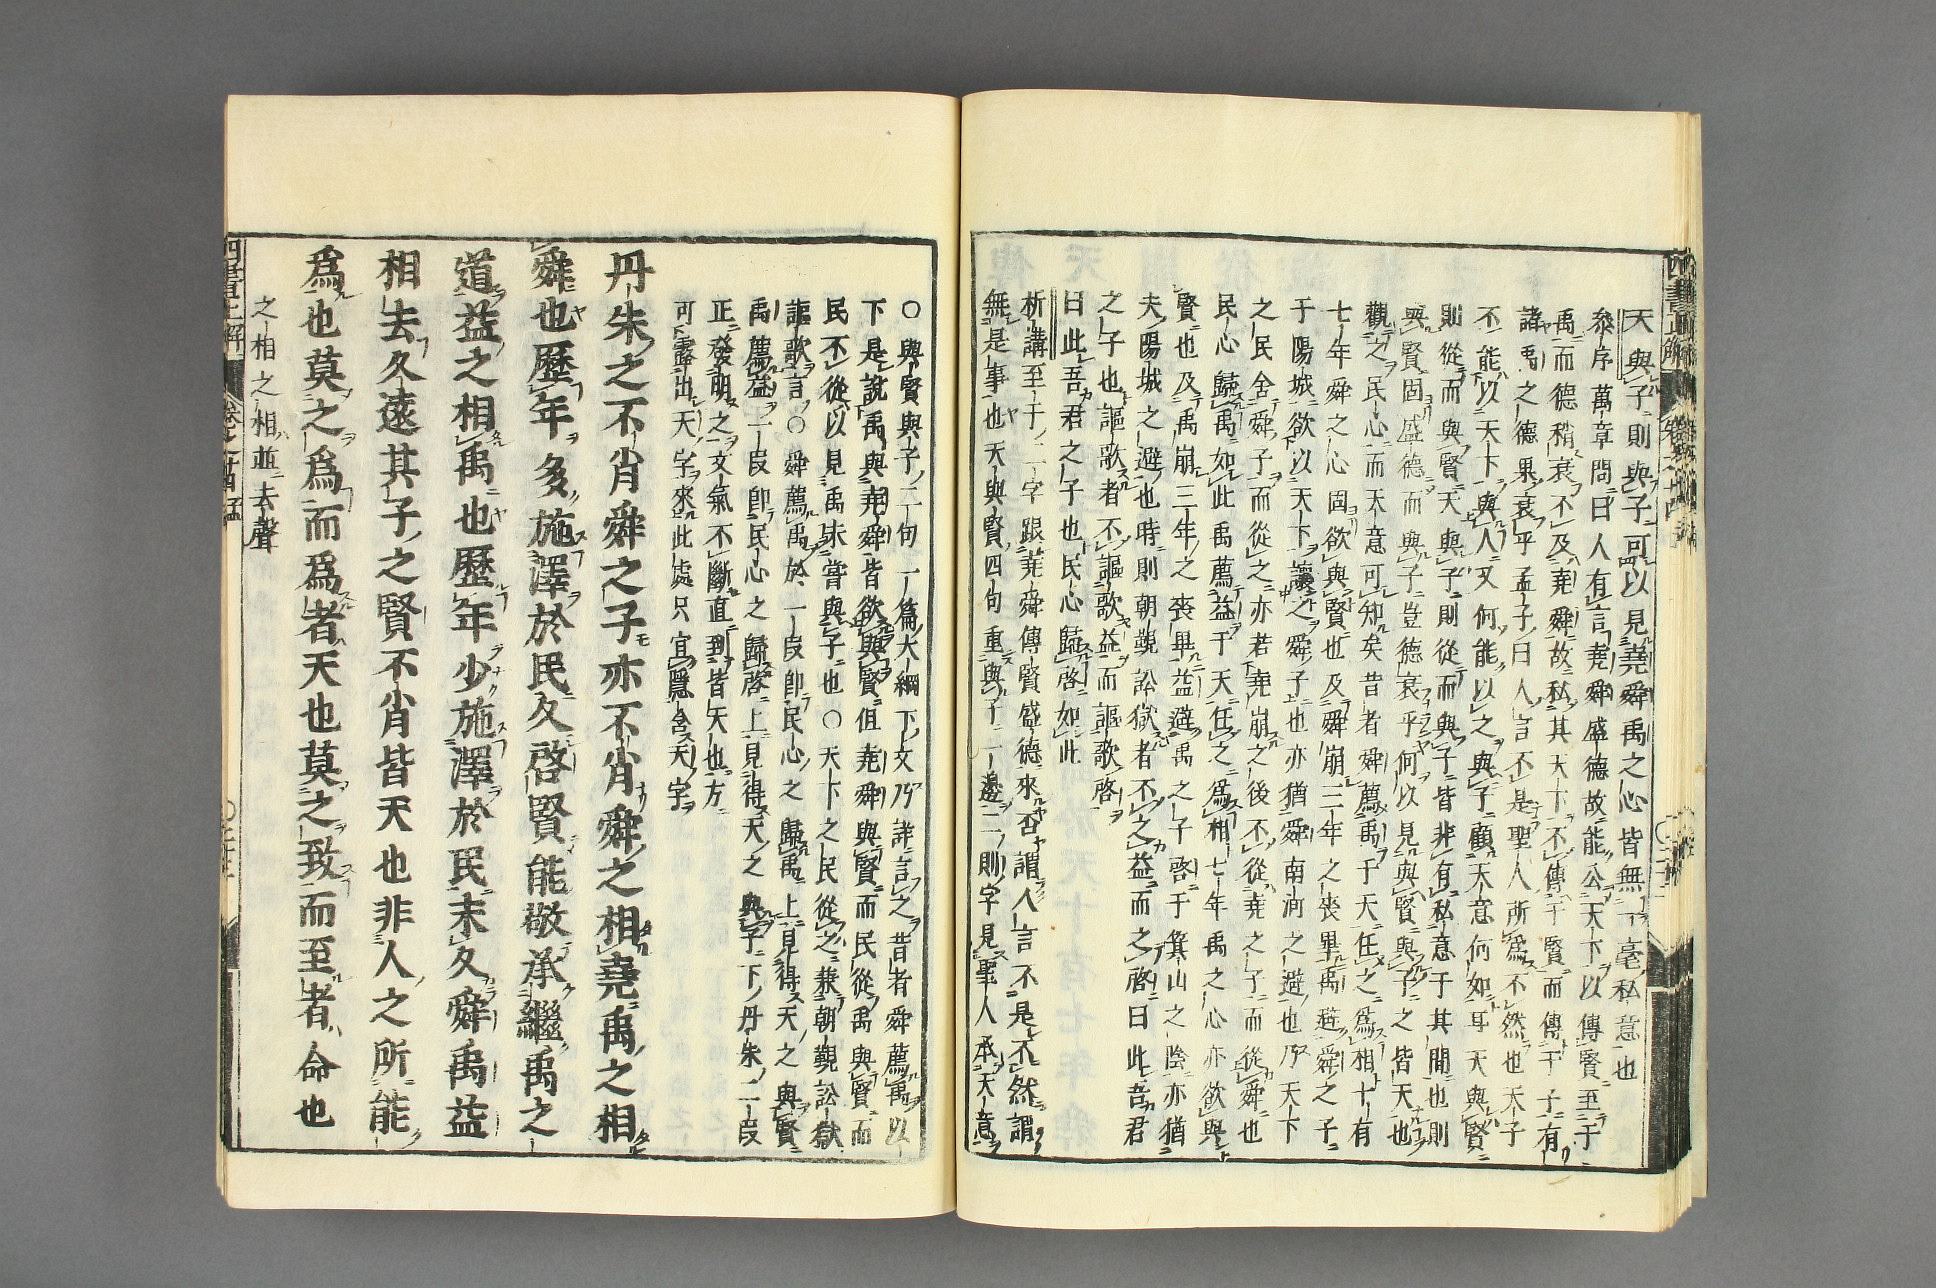 天與子則與子可以見堯舜禹之心皆無一毫私意也
參序萬章問曰人有言堯舜盛德故能公天下以傳賢至于
禹而德稍衰不及堯舜故私其天下不傳于賢而傳于子有
諸禹之德果衰乎孟子曰人言不是聖人所爲不然也天子
不能以天下與人又何能以之與子顧天意何如耳天與賢
則從而與賢天與子則從而與子皆非有私意于其間也則
與賢固盛德而與子豈德衰乎何以見與賢與子之皆天也
觀之民心而天意可知矣昔者舜薦禹于天任之爲相十有
七年舜之心固欲與賢也及舜崩三年之喪畢禹避舜之子
于陽城欲以天下讓之舜子也亦猶舜南河之避也乃天下
之民舍舜子而從之亦若堯崩之後不從堯之子而從舜也
民心歸禹如此禹薦益于天任之爲相七年禹之心亦欲與
賢也及禹崩三年之喪畢益避禹之子啓于箕山之陰亦猶
夫陽城之避也時則朝覲訟獄者不之益而之啓曰此吾君
之子也謳歌者不謳歌益而謳歌啓
曰此吾君之子也民心歸啓如此
析講至于二字跟堯舜傳賢盛德來否謂人言不是不然謂
無是事也天與賢四句重與子一邊二則字見聖人承天意
○與賢與子二句一篇大綱下文乃詳言之昔者舜薦禹以
下是說禹與堯舜皆欲與賢但堯舜與賢而民從禹與賢而
民不從以見禹未嘗與子也○天下之民從之兼朝覲訟獄
謳歌言○舜薦禹於一段卽民心之歸禹上見得天之與賢
禹薦益一段卽民心之歸啓上見得天之與子下丹朱二一段
正發明之文氣不斷直到皆天也方
可露出天字來此處只宜隱含天字
丹朱之不肖舜之子亦不肖舜之相堯禹之相
舜也歷年多施澤於民久啓賢能敬承繼禹之
道益之相禹也歷年少施澤於民未久舜禹益
相去久遠其子之賢不肖皆天也非人之所能
爲也莫之爲而爲者天也莫之致而至者命也
之相之相並去聲
四書正解